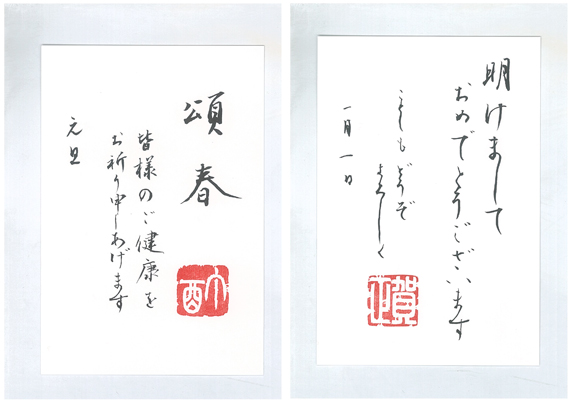 頌春
皆様のご健康を
お祈り申しあげます
元旦
明けまして
おめでとうございます
ことしもどうぞ
よろしく
一月一日
賀正